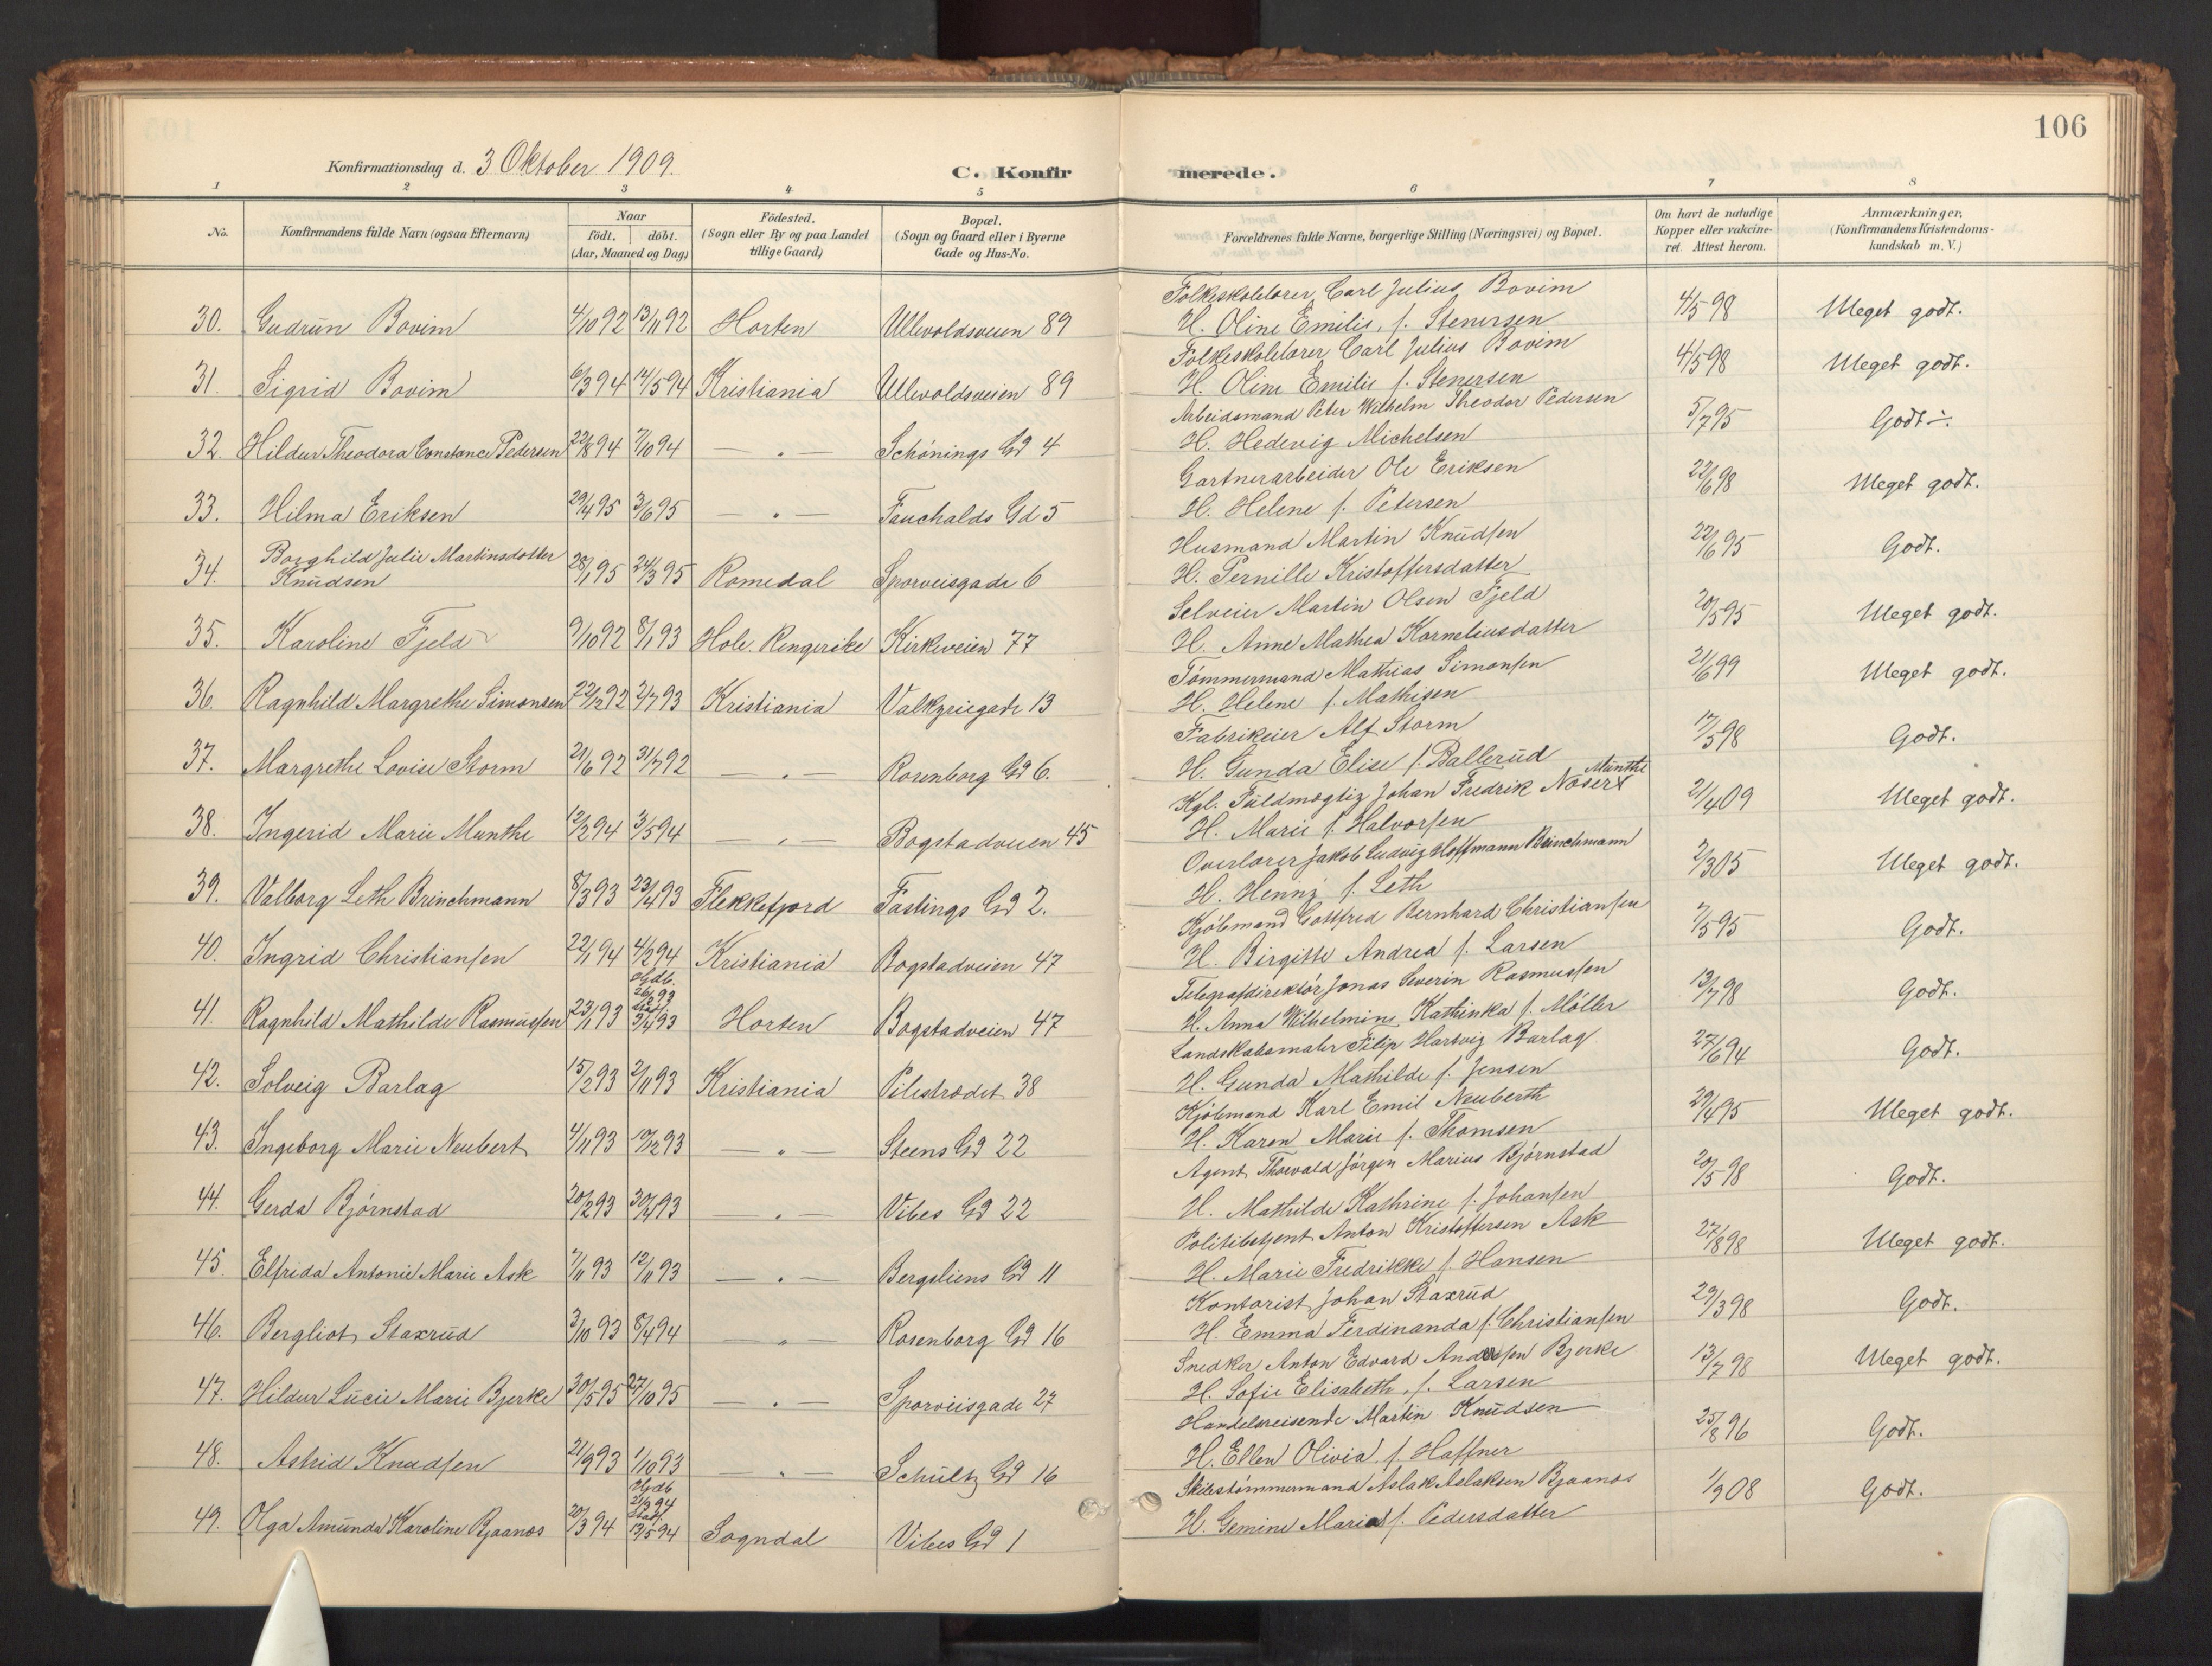 106
Konfirmationsdag d. 3 Oktober 1909. C. Konfirmerede.
1 2 3 4 5 6 7 8
No. Konfirmandens fulde Navn (ogsaa Efternavn) Naar födt. döbt. (Aar, Maaned og Dag) Födested. (Sogn eller By og paa Landet tillige Gaard) Bopæl. (Sogn og Gaard eller i Byerne Gade og Hus-No. Forældrenes fulde Navne, borgerlige Stilling (Næringsvei) og Bopæl. Om havt de naturlige Kopper eller vakcineret. Attest herom. Anmærkninger. (Konfirmandens Kristendomskundskab m. V.)
Folkeskolelærer Carl Julius Bovim
30. Gudrun Bovim 4/10 92 13/11 92 Horten Ullevoldsveien 89 H. Oline Emilie f. Stenersen 4/5 98 Meget godt.
Folkeskolelærer Carl Julius Bovim
31. Sigrid Bovim 6/3 94 14/5 94 Kristiania Ullevoldsveien 89 H. Oline Emilie f. Stenersen 4/5 98 Meget godt.
Arbeidsmand Peter Wilhelm Theodor Pedersen
32. Hildur Theodora Constance Pedersen 22/8 94 7/10 94 — " — Schönings Gd 4 H. Hedevig Michelsen 5/7 95 Godt ÷.
Gartnerarbeider Ole Eriksen
33. Hilma Eriksen 29/4 95 3/6 95 — " — Fauchalds Gd 5 H. Helene f. Petersen 22/6 98 Meget godt.
Borghild Julie Martinsdotter Husmand Martin Knudsen
34. Knudsen 28/1 95 24/3 95 Romedal Sporveisgade 6 H. Pernille Kristoffersdatter 22/6 95 Godt.
Selveier Martin Olsen Fjeld
35. Karoline Fjeld 9/10 92 8/1 93 Hole. Ringerike Kirkeveien 77 H. Anne Mathea Korneliusdatter 20/5 95 Meget godt.
Tömmermand Mathias Simonsen
36. Ragnhild Margrethe Simonsen 22/12 92 2/7 93 Kristiania Valkyriegade 13 H. Helene f. Mathisen 21/6 99 Meget godt.
Fabrikeier Alf Storm
37. Margrethe Lovise Storm 21/6 92 31/7 92 — " — Rosenborg Gd 6. H. Gunda Elise f. Ballerud 17/5 98 Godt.
Kgl. Fuldmægtig Johan Fredrik Nosert Munthe
38. Ingerid Marie Munthe 12/2 94 3/5 94 — " — Bogstadveien 45 H. Marie f. Halvorsen 21/4 09 Meget godt.
Overlærer Jakob Ludvig Hoffmann Brinchmann
39. Valborg Leth Brinchmann 8/3 93 23/4 93 Flekkefjord Fastings Gd 2. H. Henny f. Leth 2/3 05 Meget godt.
Kjöbmand Gottfred Bernhard Christiansen
40. Ingrid Christiansen 22/1 94 4/2 94 Kristiania Bogstadveien 47 H. Birgitte Andrea f. Larsen 7/5 95 Godt.
Hjdb. 26/1 93 Telegrafdirektör Jonas Severin Rasmussen
41. Ragnhild Mathilde Rasmussen 23/1 93 Stadf. 3/4 93 Horten Bogstadveien 47 H. Anna Wilhelmine Kathinka f. Möller 13/7 98 Godt.
Landskabsmaler Filip Hartvig Barlag
42. Solveig Barlag 15/2 93 2/11 93 Kristiania Pilestrædet 38 H. Gunda Mathilde f. Jensen 27/6 94 Godt.
Kjöbmand Karl Emil Neuberth
43. Ingeborg Marie Neubert 4/11 93 10/12 93 — " — Steens Gd 22 H. Karen Marie f. Thomsen 29/4 95 Meget godt.
Agent Thorvald Jörgen Marius Bjørnstad
44. Gerda Bjørnstad 20/2 93 30/4 93 — " — Vibes Gd 22 H. Mathilde Kathrine f. Johansen 20/5 98 Godt.
Politibetjent Anton Kristoffersen Ask
45. Elfrida Antonie Marie Ask 7/11 93 12/11 93 — " — Bergsliens Gd 11 H. Marie Fredrikke f. Hansen 27/8 98 Meget godt.
Kontorist Johan Staxrud
46. Bergliot Staxrud 3/10 93 8/4 94 — " — Rosenborg Gd 16 H. Emma Ferdinanda f. Christiansen 29/3 98 Godt.
Snedker Anton Edvard Andersen Bjerke
47. Hildur Lucie Marie Bjerke 30/5 95 27/10 95 — " — Sporveisgade 27 H. Sofie Elisabeth f. Larsen 13/7 98 Meget godt.
Handelsreisende Martin Knudsen
48. Astrid Knudsen 21/9 93 1/10 93 — " — Schultz Gd 16 H. Ellen Olivia f. Haffner 25/8 96 Godt.
Hjdb 21/3 94 Skibstömmermand Aslak Aslaksen Bjaanæs
49. Olga Amunda Karoline Bjaanæs 20/3 94 Stadf. 13/5 94 Sogndal Vibes Gd 1 H. Gemine Maria f. Pedersdatter 1/9 08 Godt.